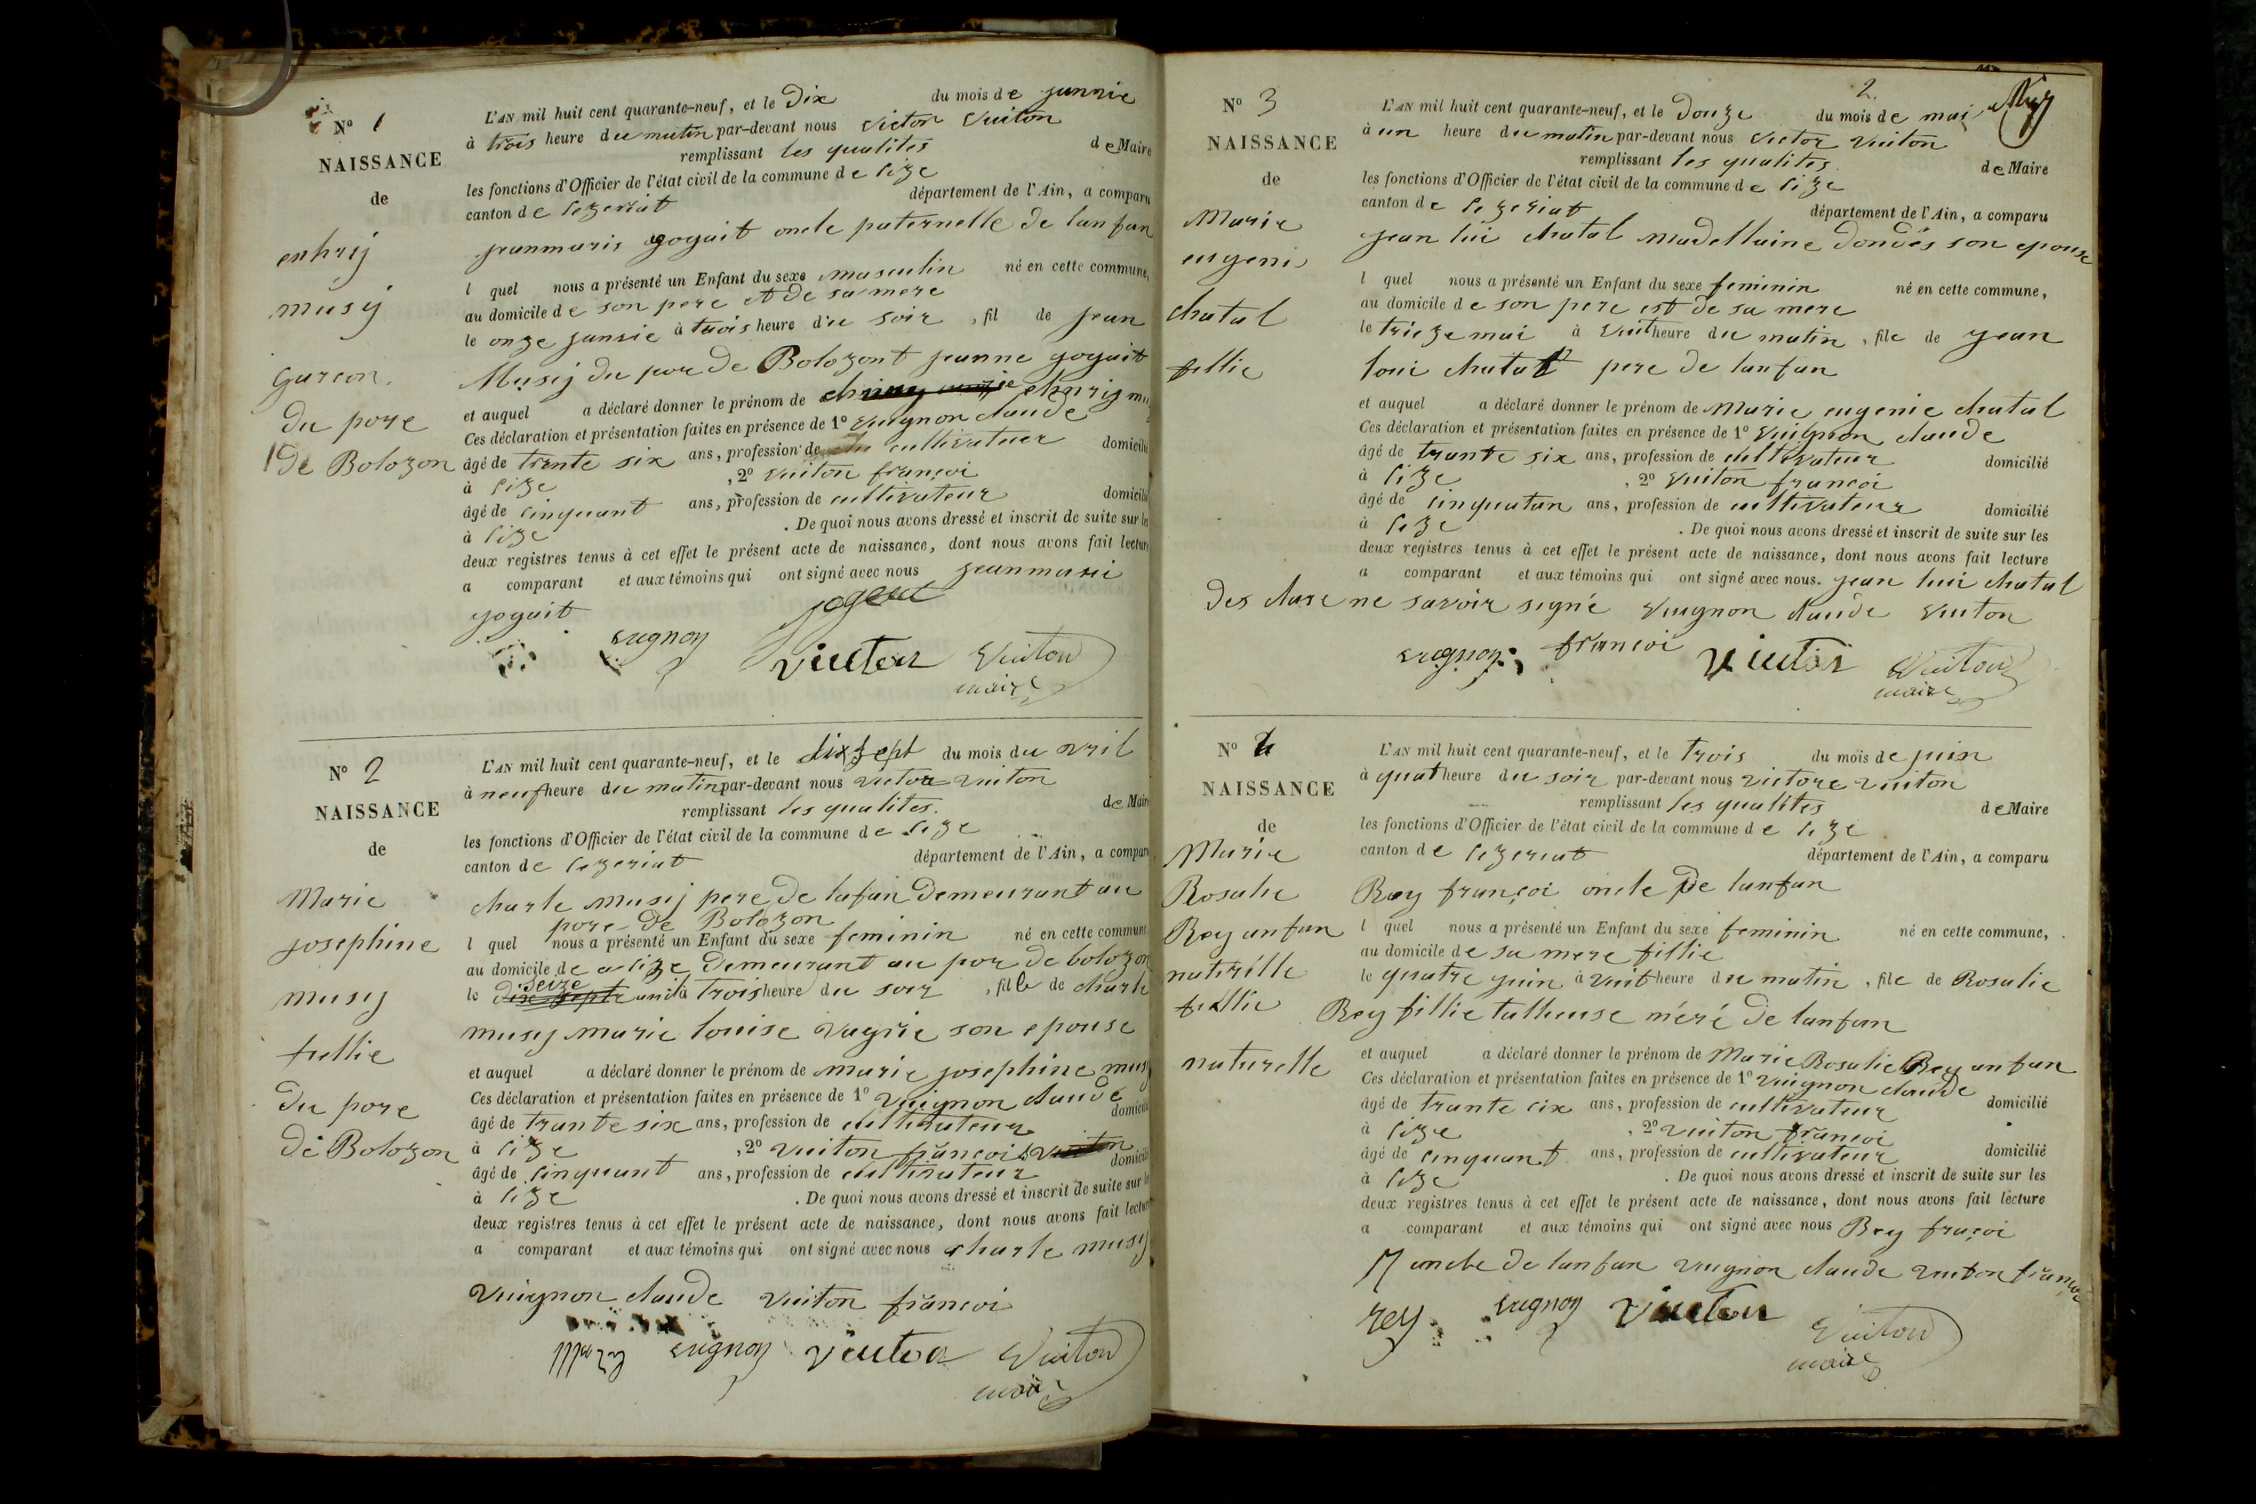 N° 1
NAISSANCE
de
enhrij
musij
garcon.
du pore
de Bolozon
L'AN mil huit cent quarante-neuf, et le dix du mois de janvie
à trois heure du matin par-devant nous victor vuiton
remplissant les qualites de Maire
les fonctions d'Officier de l'état civil de la commune de lize
canton de lezeriat département de l'Ain, a comparu
jeanmaris goyait oncle paternelle de lanfan
l quel nous a présenté un Enfant du sexe masculin né en cette commune,
au domicile de son pere et de sa mere
le onze janvie à trois heure du soir, fil de jean
Musij du por de Bolozont jeanne goyait
et auquel a déclaré donner le prénom de ehnrij mu
Ces déclaration et présentation faites en présence de 1° vuignon claude
âgé de trente six ans, profession de cultivatuer domicilié
à lize, 2° vuiton françoi
âgé de cinquant ans, profession de cultivateur domicilié
à lize. De quoi nous avons dressé et inscrit de suite sur les
deux registres tenus à cet effet le présent acte de naissance, dont nous avons fait lecture
a comparant et aux témoins qui ont signé avec nous jeanmari
goyait
vugnon Vuiton
maire
N° 2
NAISSANCE
de
Marie
josephine
musij
fillie
du pore
de Bolozon
L'AN mil huit cent quarante-neuf, et le dix sept du mois du vril
à neuf heure du matin par-devant nous victor vuiton
remplissant les qualites. de Maire
les fonctions d'Officier de l'état civil de la commune de lize
canton de lezeriat département de l'Ain, a comparu
charle musij pere de lafan demeurant au
pore de Bolozon
l quel nous a présenté un Enfant du sexe feminin né en cette commune
au domicile de a lize demeurant au por de bolozon
seize
le dix septe avril à trois heure du soir, fille de charle
musij marie louise vagrie son epouse
et auquel a déclaré donner le prénom de marie josephine musij
Ces déclaration et présentation faites en présence de 1° vuignon claude
âgé de trante six ans, profession de cultivateur domicilié
à lize, 2° vuiton françoi
âgé de cinquant ans, profession de cultivateur domicilié
à lize. De quoi nous avons dressé et inscrit de suite sur les
deux registres tenus à cet effet le présent acte de naissance, dont nous avons fait lecture
a comparant et aux témoins qui ont signé avec nous charle musij
vuignon claude vuiton françoi
vugnon Vuiton
maire
2.
N° 3
NAISSANCE
de
Marie
eugeni
chatal
fillie
L'AN mil huit cent quarante-neuf, et le douze du mois de mai
à un heure du matin par-devant nous victor vuiton
remplissant les qualites. de Maire
les fonctions d'Officier de l'état civil de la commune de lize
canton de lezeriat département de l'Ain, a comparu
jean lui chatal madellaine dondés son epouse
l quel nous a présenté un Enfant du sexe feminin né en cette commune,
au domicile de son pere est de sa mere
le trieze mai à vuit heure du matin, file de jean
loui chatal pere de lanfan
et auquel a déclaré donner le prénom de Marie eugenie chatal
Ces déclaration et présentation faites en présence de 1° vuignon claude
âgé de trante six ans, profession de cultivateur domicilié
à lize, 2° vuiton francoi
âgé de cinquatan ans, profession de cultivateur domicilié
à lize. De quoi nous avons dressé et inscrit de suite sur les
deux registres tenus à cet effet le présent acte de naissance, dont nous avons fait lecture
a comparant et aux témoins qui ont signé avec nous. jean lui chatal
des clare ne savoir signé vuignon claude vuiton
françoi
vugnon Vuiton
maire
N° 4
NAISSANCE
de
Marie
Rosalie
Rey anfan
naturille
fillie
naturelle
L'AN mil huit cent quarante-neuf, et le trois du mois de juin
à quat heure du soir par-devant nous victore vuiton
remplissant les qualites de Maire
les fonctions d'Officier de l'état civil de la commune de lize
canton de lezeriat département de l'Ain, a comparu
Rey françoi oncle de lanfan
l quel nous a présenté un Enfant du sexe feminin né en cette commune,
au domicile de sa mere fillie
le quatre juin à vuit heure du matin, file de Rosalie
Rey fillie talheuse méré de lanfan
et auquel a déclaré donner le prénom de Marie Rosalie Rey anfan
Ces déclaration et présentation faites en présence de 1° vuignon claude
âgé de trante cix ans, profession de cultivateur domicilié
à lize, 2° vuiton françoi
âgé de cinquant ans, profession de cultivateur domicilié
à lize. De quoi nous avons dressé et inscrit de suite sur les
deux registres tenus à cet effet le présent acte de naissance, dont nous avons fait lecture
a comparant et aux témoins qui ont signé avec nous Rey fraçoi
oncle de lanfan vuignon claude vuiton françoi
rey vugnon Vuiton
maire